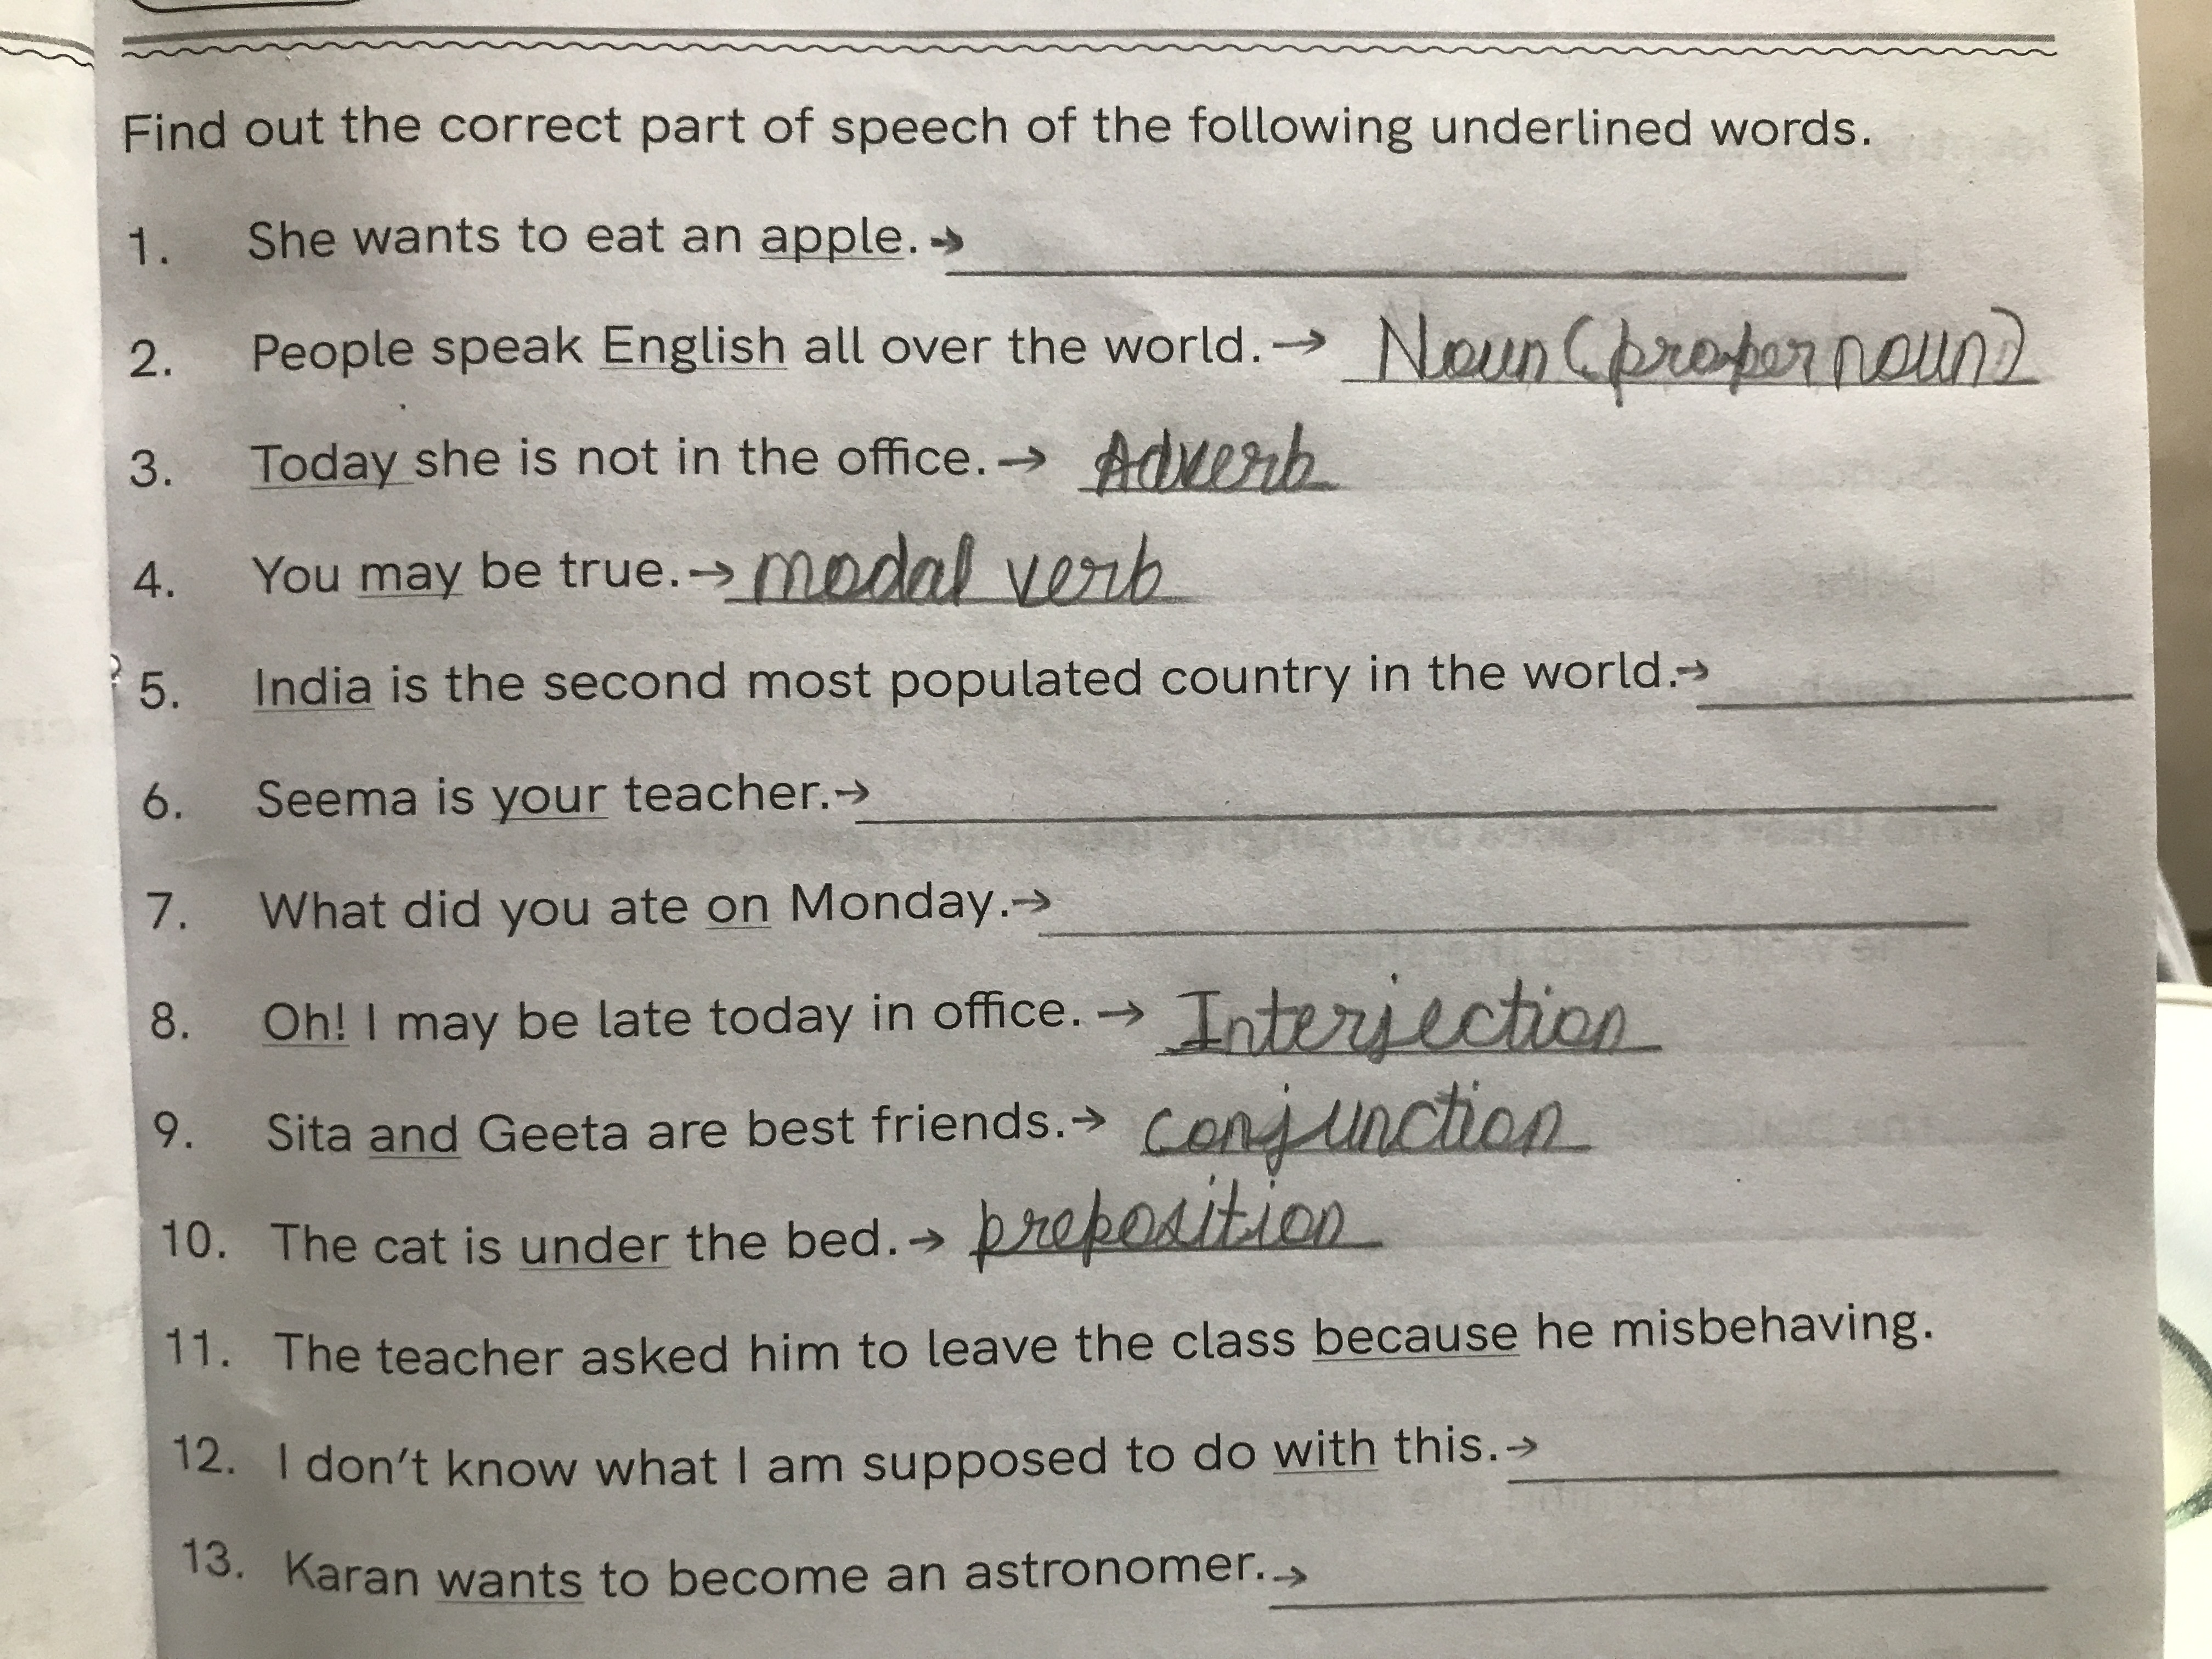 Find out the correct part of speech of the following underlined words.
1. She wants to eat an apple. →
2. People speak English all over the world. → Noun (proper noun)
3. Today she is not in the office. → Adverb
4. You may be true. → modal verb
5. India is the second most populated country in the world. →
6. Seema is your teacher. →
7. What did you ate on Monday. →
8. Oh! I may be late today in office. → Interjection
9. Sita and Geeta are best friends. → conjunction
10. The cat is under the bed. → preposition
11. The teacher asked him to leave the class because he misbehaving.
12. I don't know what I am supposed to do with this. →
13. Karan wants to become an astronomer. →